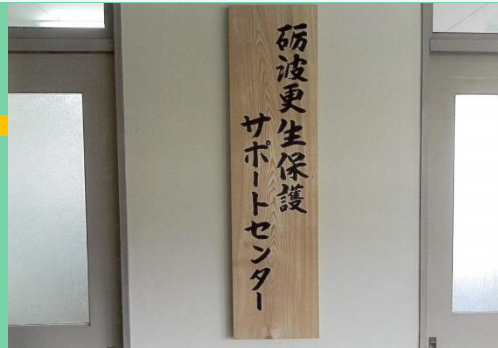 砺波更生保護
サポートセンター